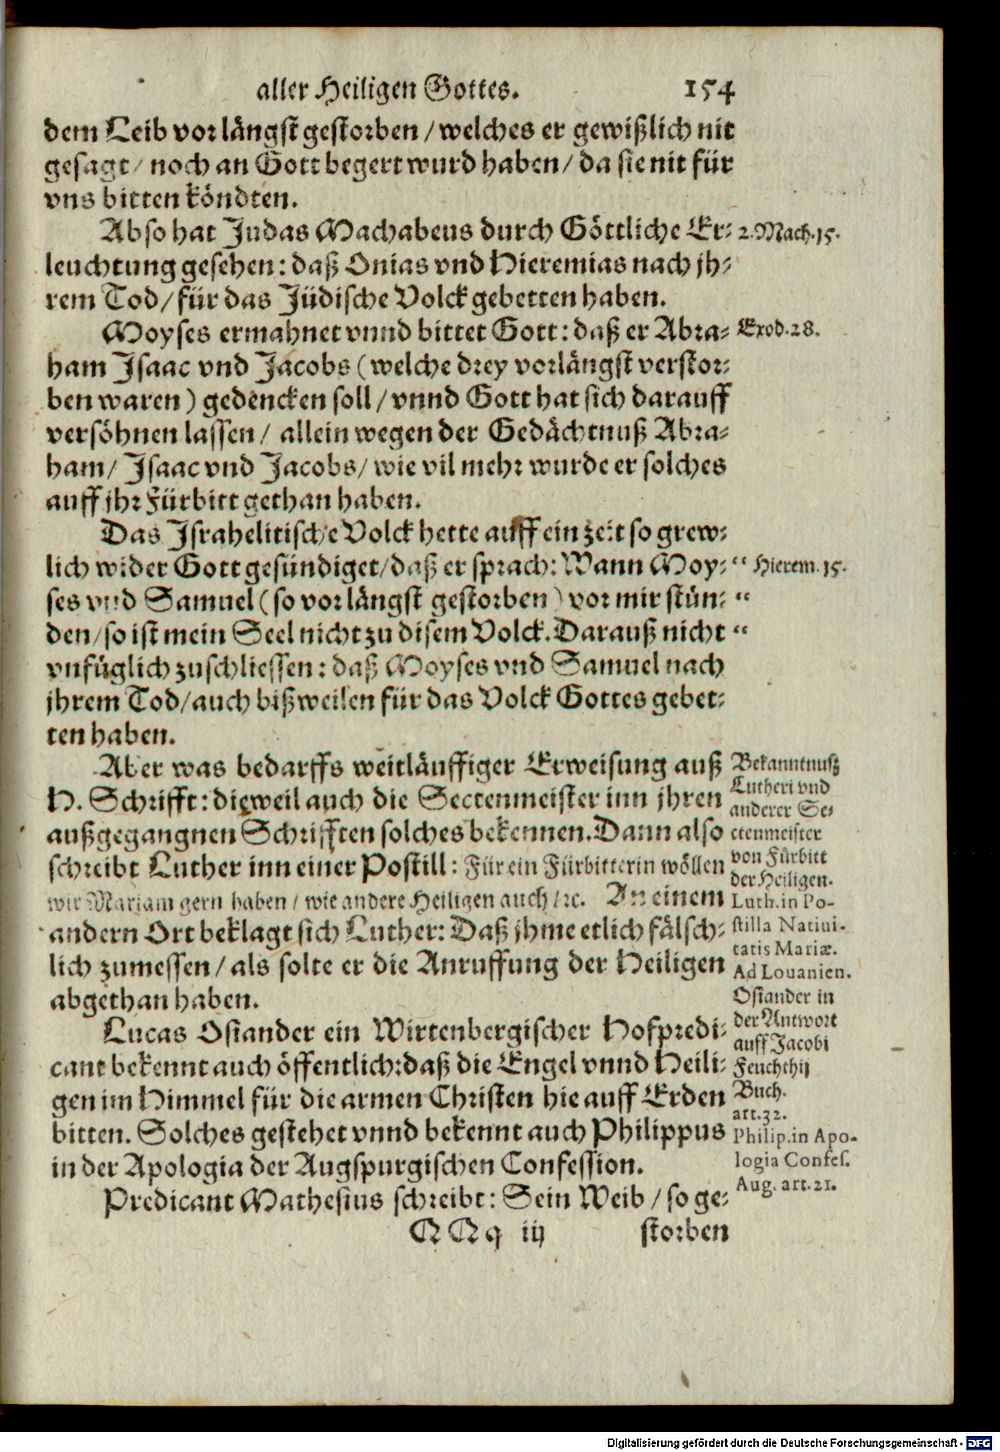 aller Heiligen Gottes. 154
dem Leib vorlängst gestorben / welches er gewißlich nit
gesagt / noch an Gott begert wurd haben / da sie nit für
vns bitten köndten.
Also hat Judas Machabeus durch Göttliche Er-
leuchtung gesehen: daß Onias vnd Hieremias nach jh-
rem Tod / für das Jüdische Volck gebetten haben.
2. Mach. 15.
Moyses ermahnet vnnd bittet Gott: daß er Abra-
ham Isaac vnd Jacobs (welche drey vorlängst verstor-
ben waren) gedencken soll / vnnd Gott hat sich darauff
versöhnen lassen / allein wegen der Gedächtnuß Abra-
ham / Isaac vnd Jacobs / wie vil mehr wurde er solches
auff jhr Fürbitt gethan haben.
Exod. 28.
Das Israhelitische Volck hette auff ein zeit so grew-
lich wider Gott gesündiget / daß er sprach: Wann Moy- “
ses vnd Samuel (so vorlängst gestorben) vor mir stün- “
den / so ist mein Seel nicht zu disem Volck. Darauß nicht “
vnfüglich zuschliessen: daß Moyses vnd Samuel nach
jhrem Tod / auch bißweilen für das Volck Gottes gebet-
ten haben.
Hierem. 15.
Aber was bedarffs weitläuffiger Erweisung auß
H. Schrifft: dieweil auch die Sectenmeister inn jhren
außgegangnen Schrifften solches bekennen. Dann also
schreibt Luther inn einer Postill: Für ein Fürbitterin wöllen
wir Mariam gern haben / wie andere Heiligen auch / ꝛc. An einem
andern Ort beklagt sich Luther: Daß jhme etlich fälsch-
lich zumessen / als solte er die Anruffung der Heiligen
abgethan haben.
Bekanntnusz
Lutheri vnd
anderer Se-
ctenmeister
von Fürbitt
der Heiligen.
Luth. in Po-
stilla Natiui-
tatis Mariæ.
Ad Louanien.
Lucas Osiander ein Wirtenbergischer Hofpredi-
cant bekennt auch öffentlich: daß die Engel vnnd Heili-
gen im Himmel für die armen Christen hie auff Erden
bitten. Solches gestehet vnnd bekennt auch Philippus
in der Apologia der Augspurgischen Confession.
Osiander in
der Antwort
auff Jacobi
Feuchthij
Buch.
art. 32.
Philip. in Apo-
logia Confes.
Aug. art. 21.
Predicant Mathesius schreibt: Sein Weib / so ge-
QQq iij storben
Digitalisierung gefördert durch die Deutsche Forschungsgemeinschaft - DFG